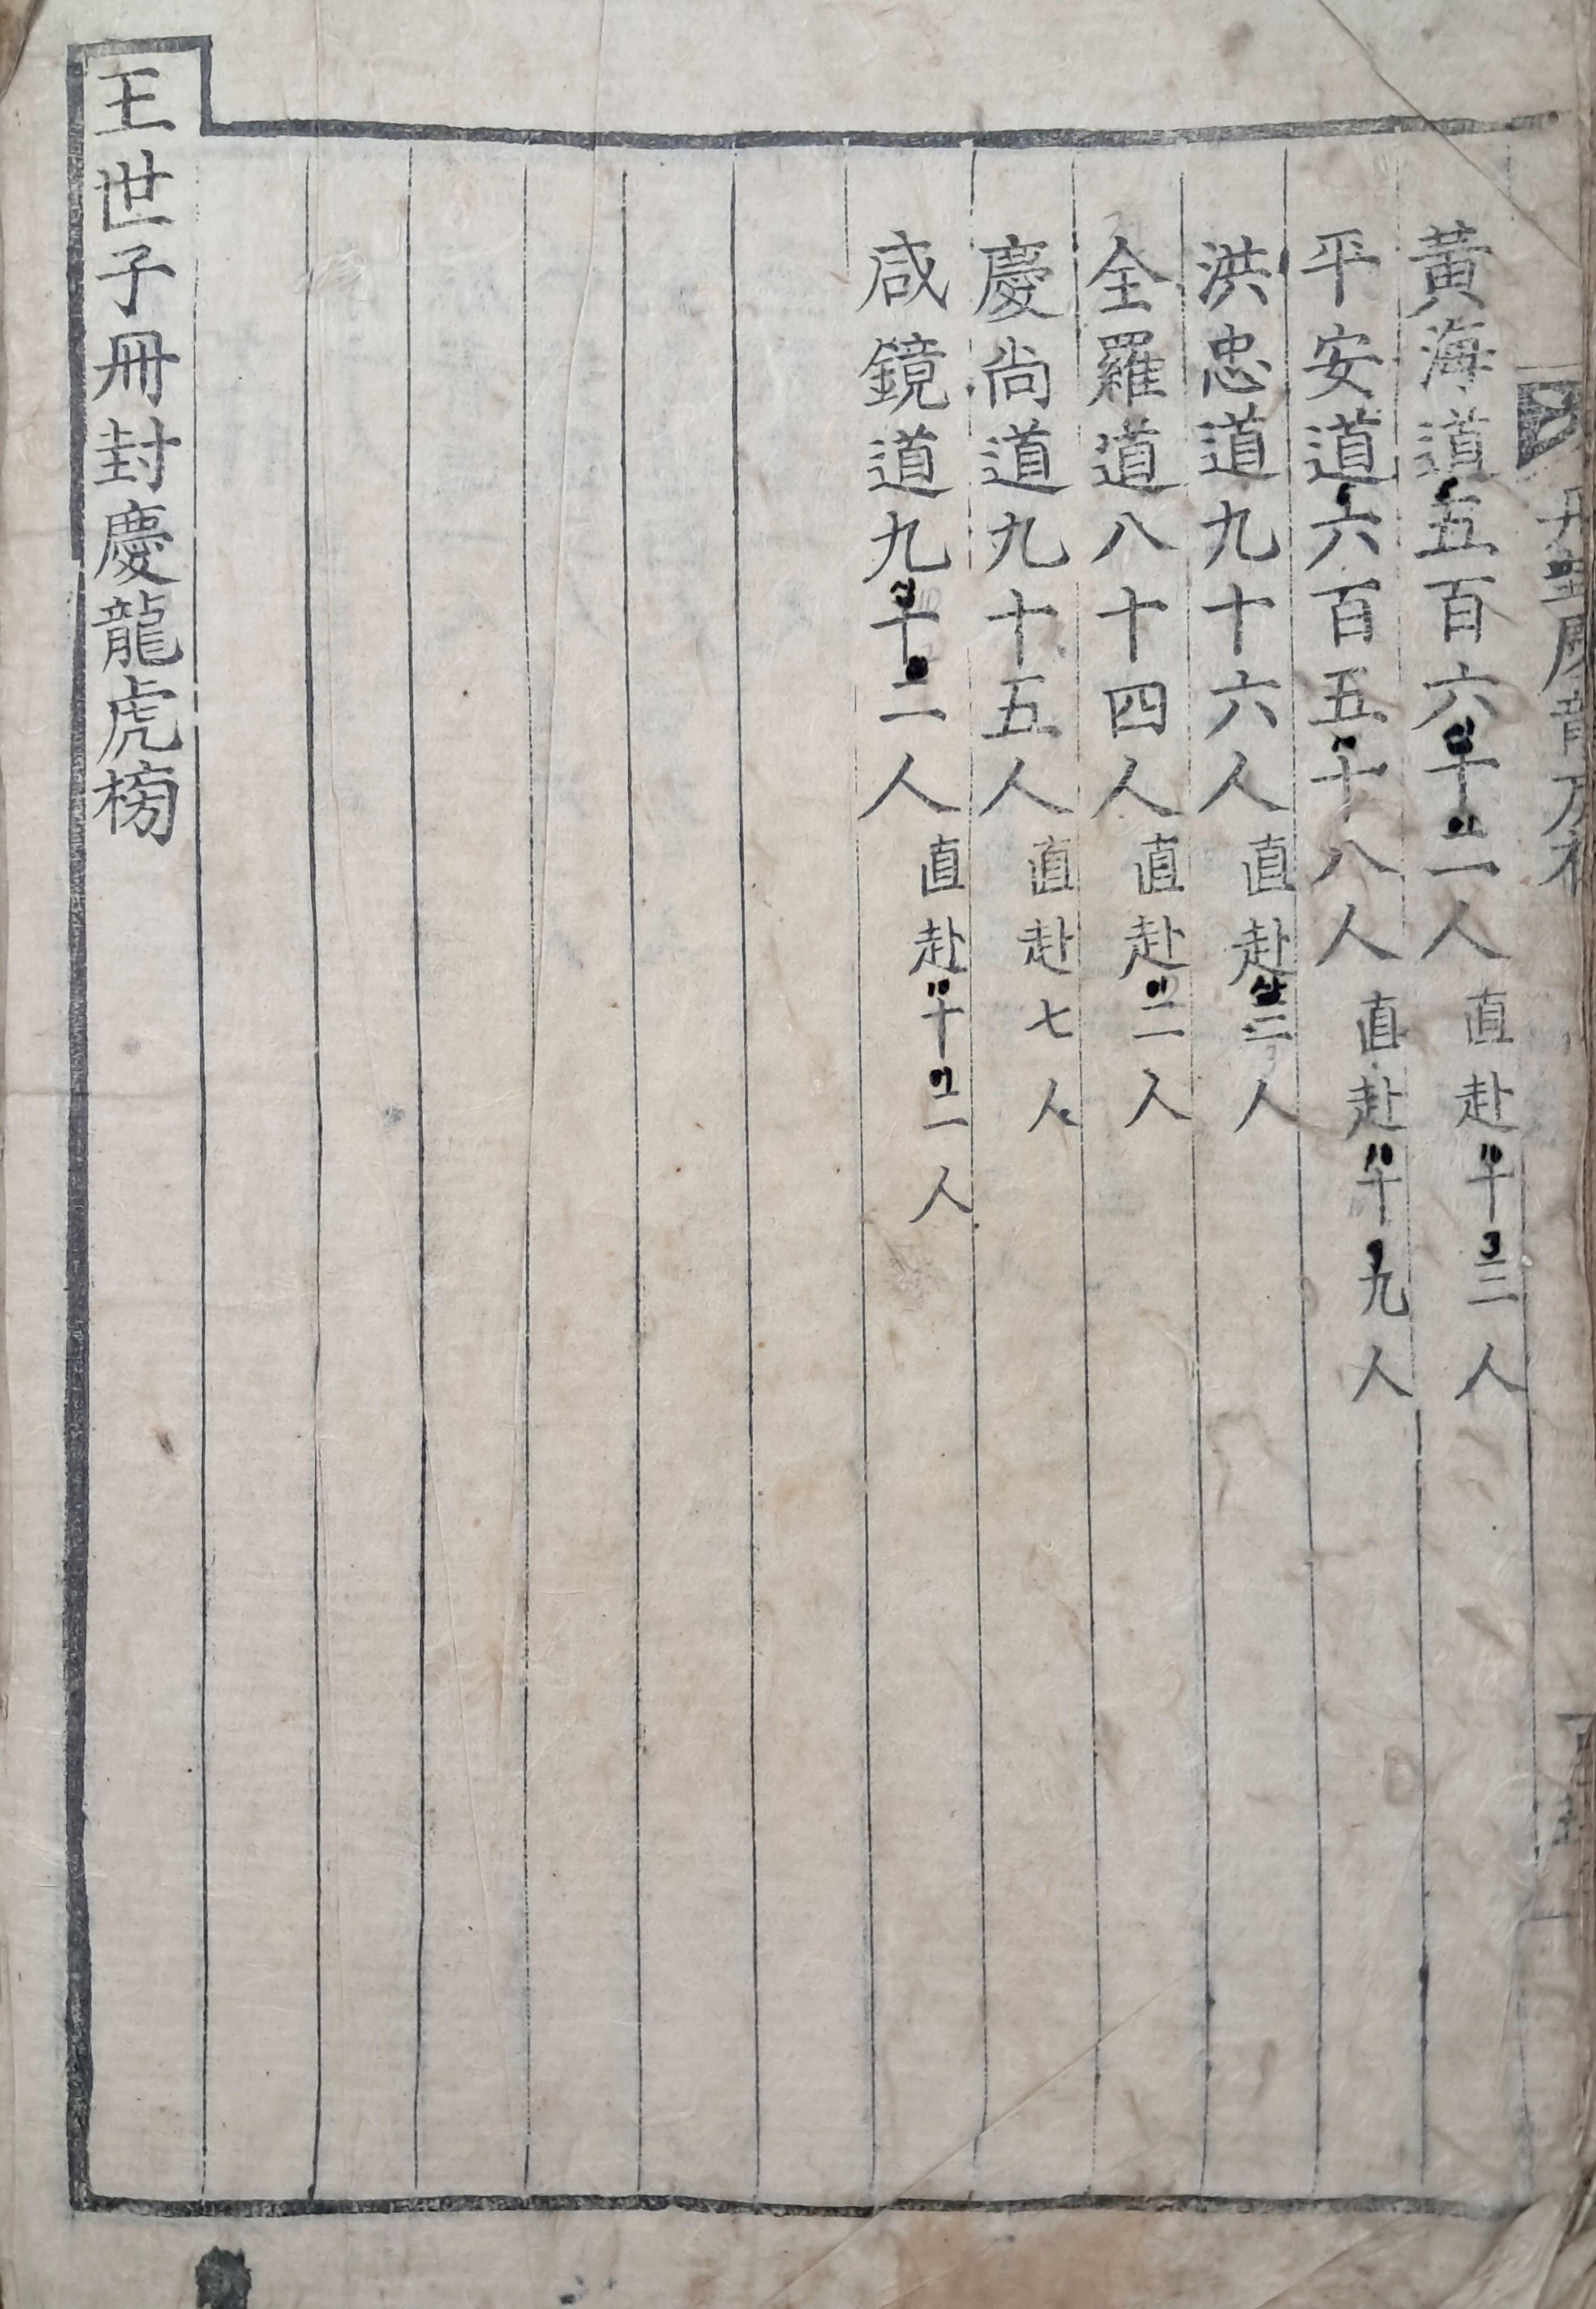 黃海道五百六十二人直赴十三人
平安道六百五十八人直赴十九人
洪忠道九十六人直赴三人
全羅道八十四人直赴二人
慶尙道九十五人直赴七人
咸鏡道九十二人直赴十二人
王世子冊封慶龍虎榜